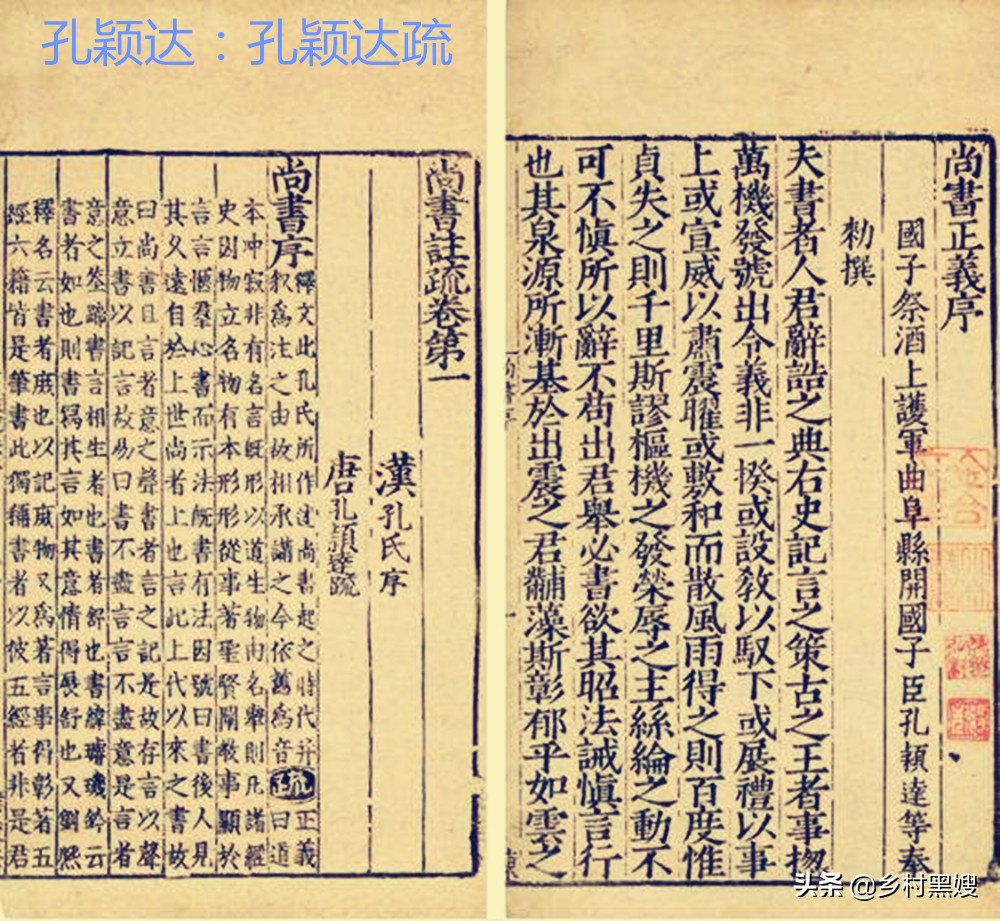 孔颖达：孔颖达疏
尚書正義序
國子祭酒上護軍曲阜縣開國子臣孔穎達等奉
勑撰
夫書者人君辭誥之典右史記言之策古之王者事揔
萬機發號出令義非一揆或設教以馭下或展禮以事
上或宣威以肅震曜或敷和而散風雨得之則百度惟
貞失之則千里斯謬樞機之發榮辱之主絲綸之動不
可不慎所以辭不苟出君舉必書欲其昭法誡慎言行
也其泉源所漸基於出震之君黼藻斯彰郁乎如雲之
尚書註疏卷第一
漢孔氏序
唐孔穎達疏
尚書序
釋文此孔氏所作述尚書起之時代并
叙為注之由故相承講之今依舊為音
疏
正義
曰道
本冲寂非有名言既形以道生物由名舉則凡諸經
史因物立名物有本形形從事著聖賢闡教事顯於
言言愜羣心書而示法既書有法因號曰書後人見
其久遠自於上世尚者上也言此上代以來之書故
曰尚書且言者意之聲書者言之記是故存言以聲
意立書以記言故易曰書不盡言言不盡意是言者
意之筌蹄書言相生者也書者舒也書緯璿璣鈐云
書者如也則書寫其言如其意情得展舒也又劉熙
釋名云書者庶也以記庶物又為著言事得彰著五
經六籍皆是筆書此獨稱書者以彼五經者非是君
头条 @乡村黑嫂